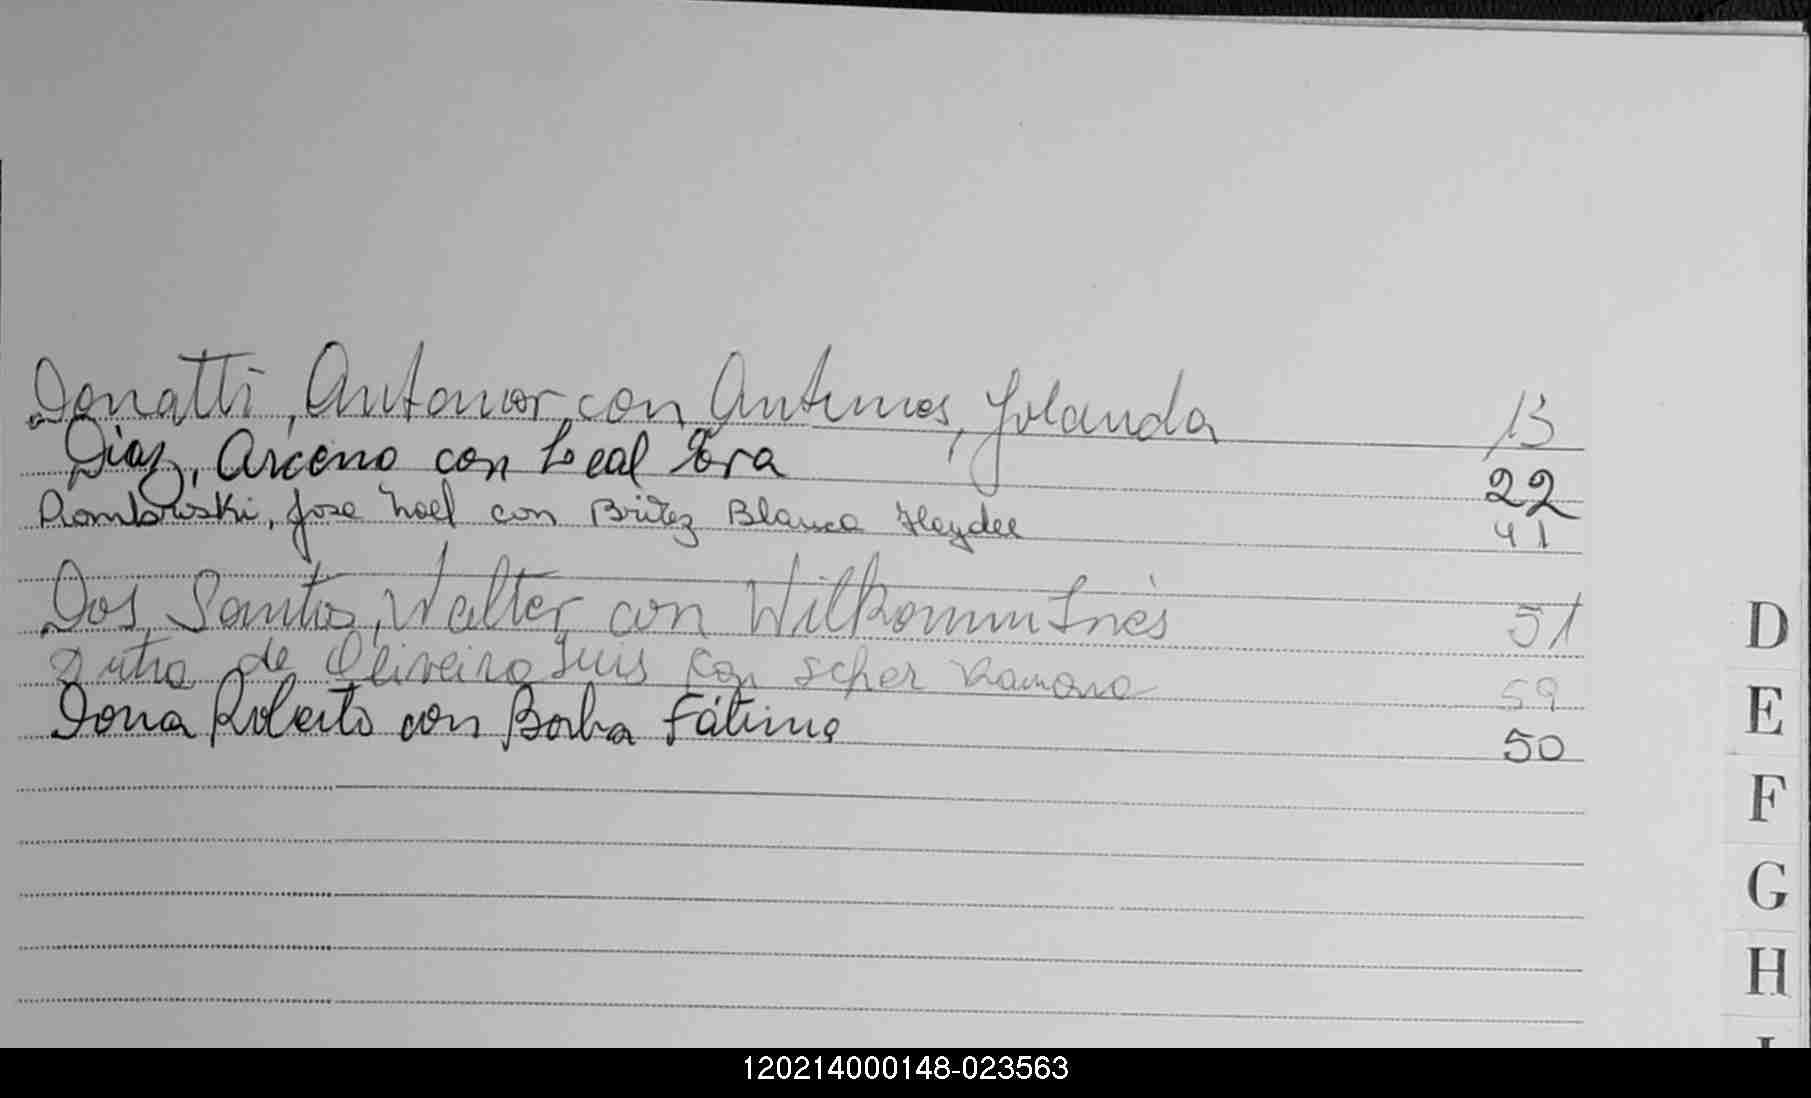 Donatti, Antonor con Antunes, Yolanda 13
Diaz, Arceno con Leal Eva 22
Dombroski, Jose Noel con Britez Blanca Haydee 41
Dos Santos, Walter con Wilkomm Inés 51
Dutra de Oliveira Luis con Scher Ramona 59
Dona Roberto con Borba Fátima 50
D
E
F
G
H
120214000148-023563